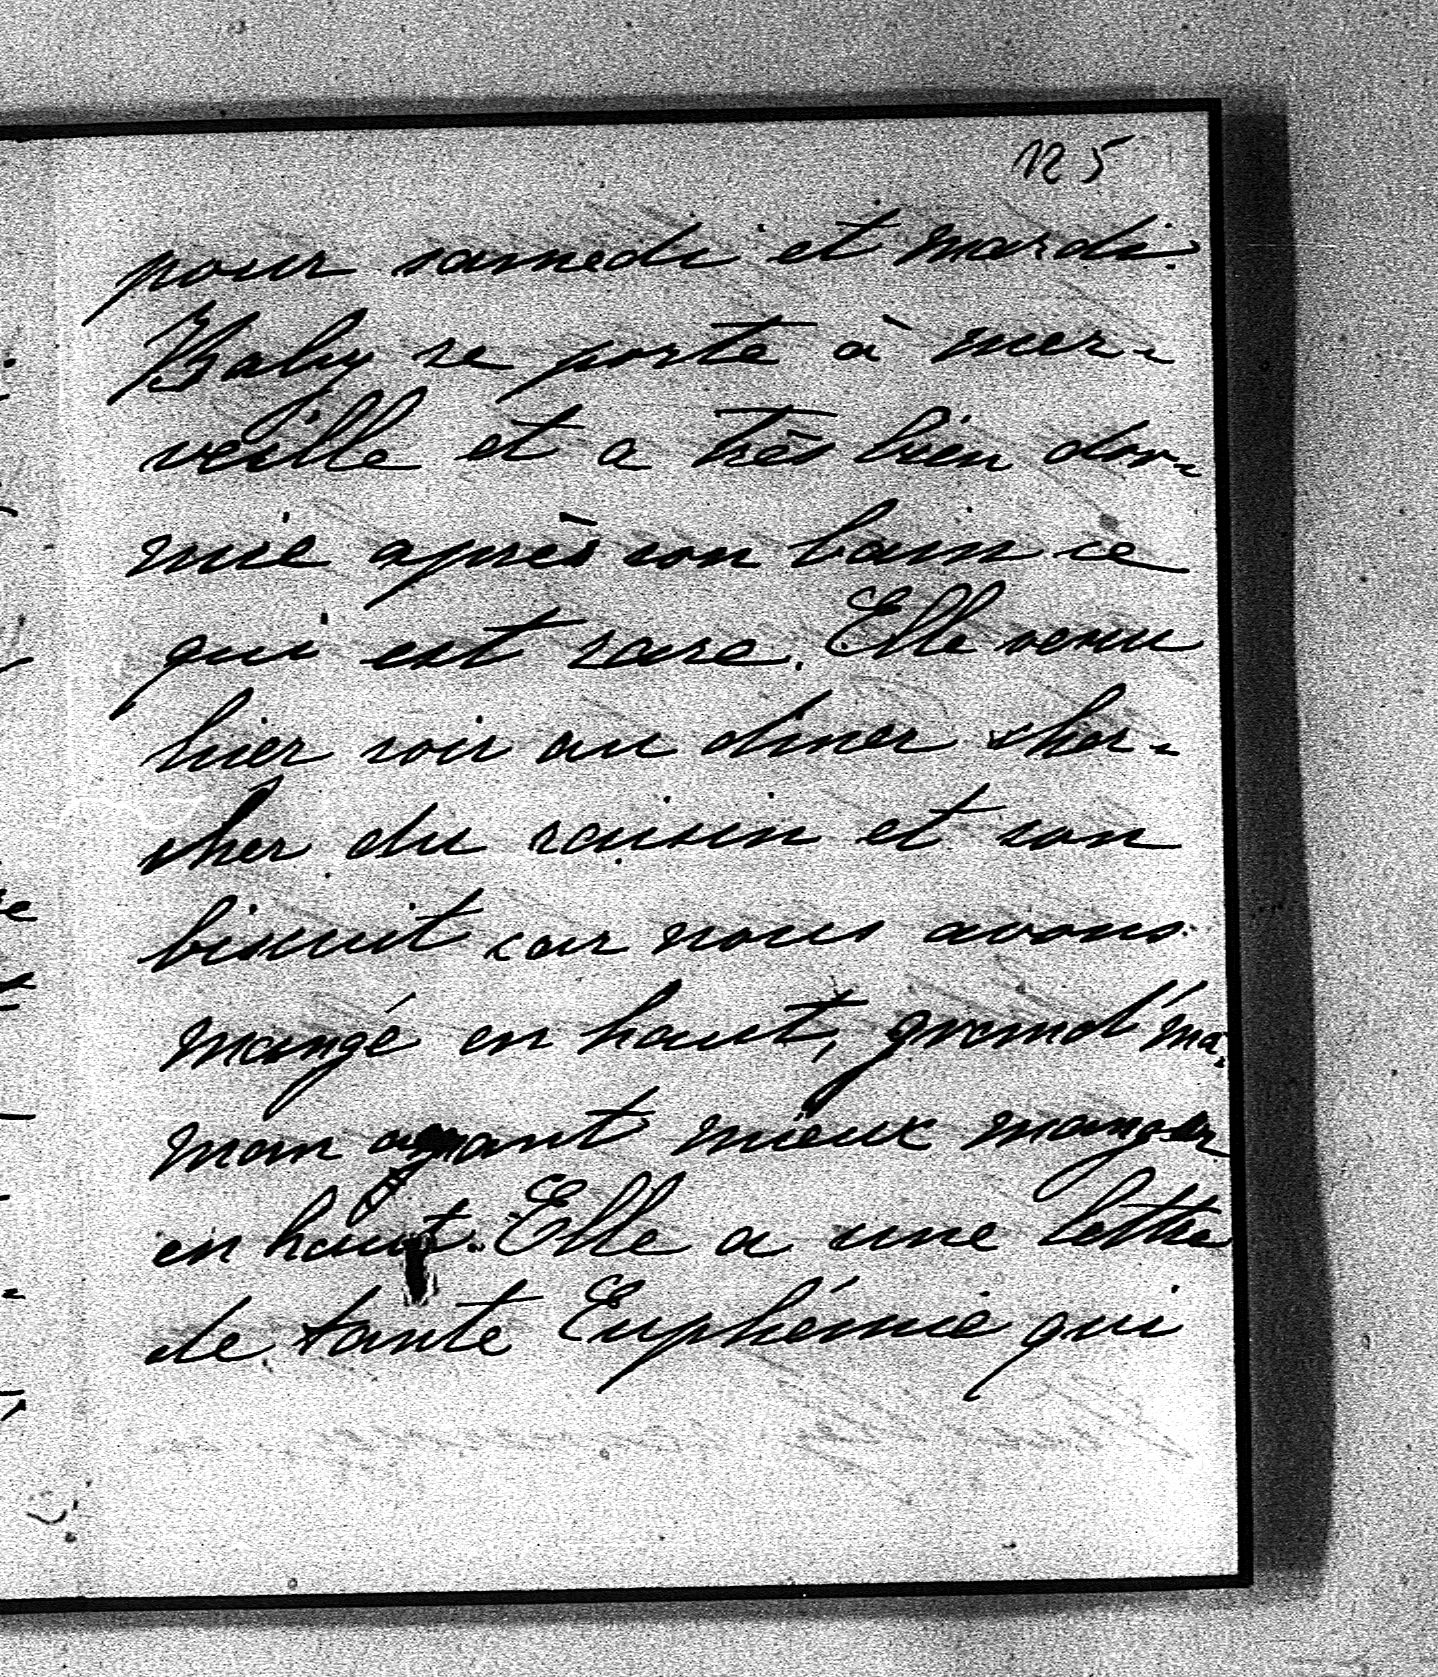 125
pour samedi et mardi.
Baby se porte à mer-
veille et a très bien dor-
mie après son bain ce
qui est rare. Elle venu
hier soir au diner cher-
cher du raisin et son
biscuit car nous avons
mangé en haut, grand'ma-
man ayant mieux manger
en haut. Elle a une lettre
de tante Euphémie qui